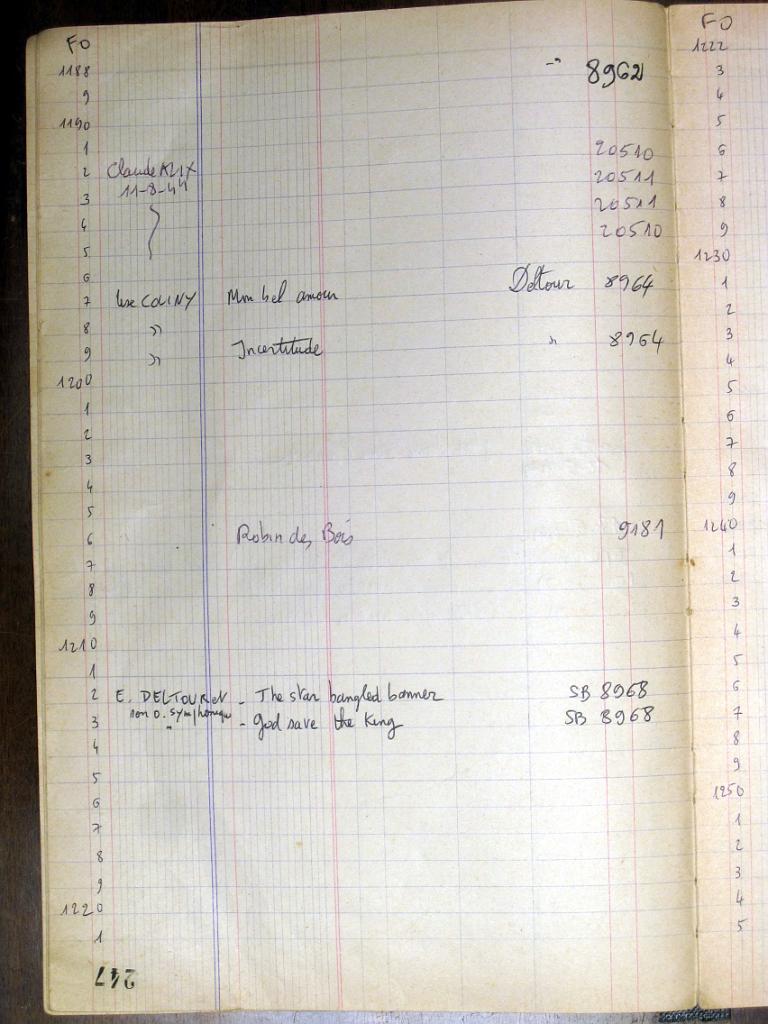 FO
1188 -" 8962
9
1190
1 20510
2 Claude 20511
3 11-8-44 20511
4 20510
5
6
7 COLINY Mon bel amour Deltour 8964
8 "
9 " Incertitude " 8964
1200
1
2
3
4
5
6 Robin des Bois 9181
7
8
9
1210
1
2 E. DELTOUR et - The star bangled banner SB 8968
son O. Symphonique
3 " - God save the King SB 8968
4
5
6
7
8
9
1220
1
247
FO
1222
3
4
5
6
7
8
9
1230
1
2
3
4
5
6
7
8
9
1240
1
2
3
4
5
6
7
8
9
1250
1
2
3
4
5